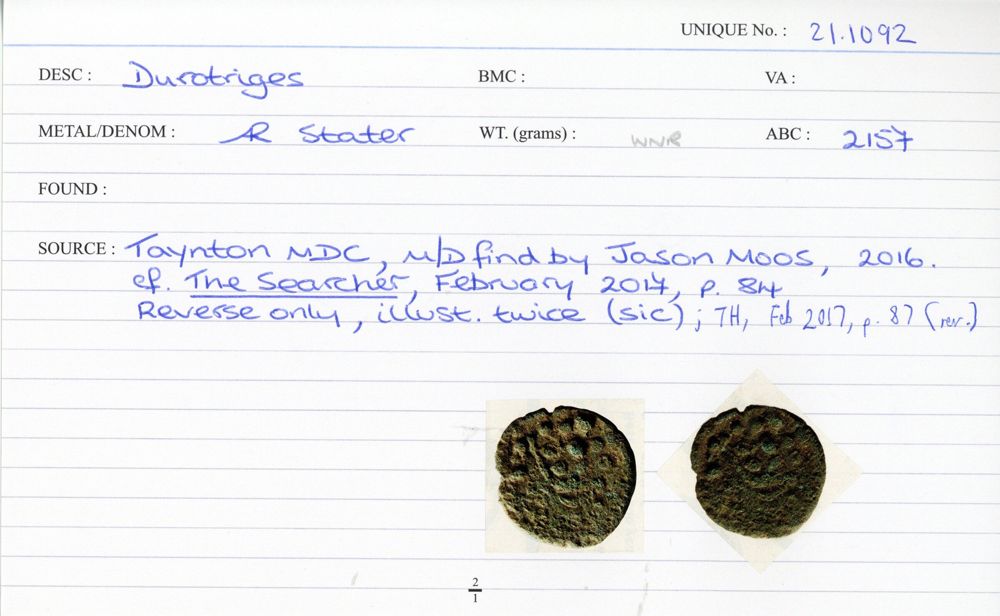 UNIQUE No. : 21.1092
DESC : Durotriges BMC : VA :
METAL/DENOM : Æ Stater WT. (grams) : WNR ABC : 2157
FOUND :
SOURCE : Taynton MDC, M/D find by Jason Moos, 2016.
cf. The Searcher, February 2017, p. 84
Reverse only, illust. twice (sic) ; TH, Feb 2017, p. 87 (rev.)
2
1